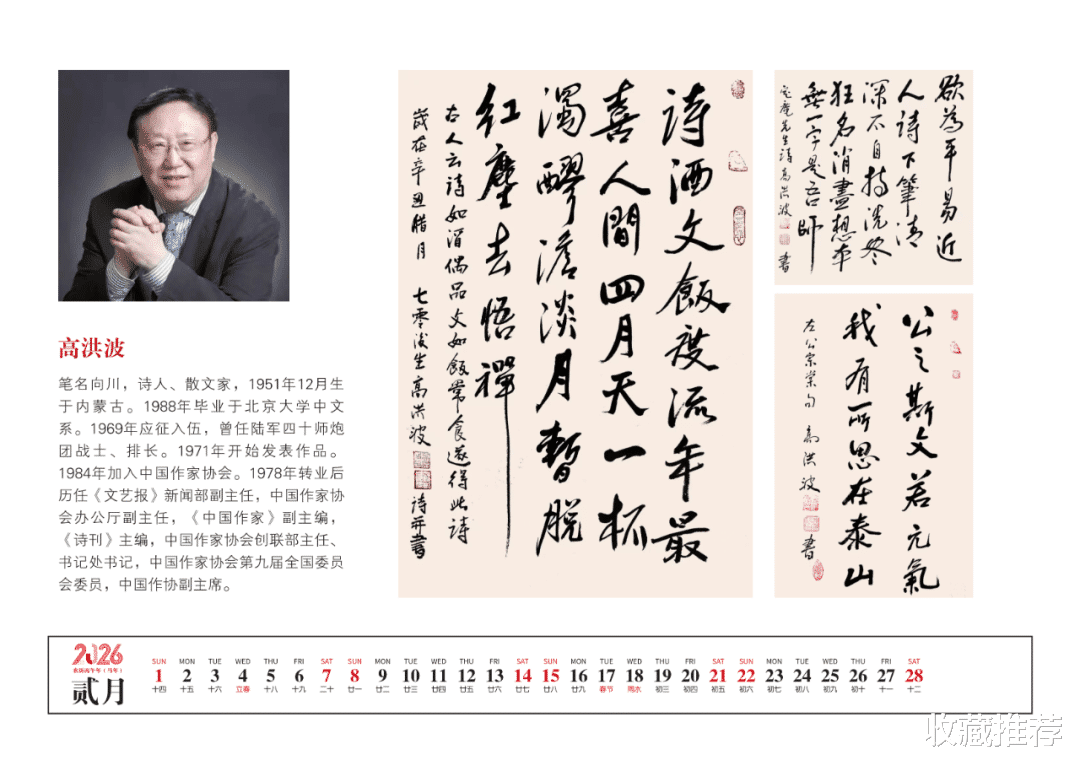 高洪波
笔名向川，诗人、散文家，1951年12月生
于内蒙古。1988年毕业于北京大学中文
系。1969年应征入伍，曾任陆军四十师炮
团战士、排长。1971年开始发表作品。
1984年加入中国作家协会。1978年转业后
历任《文艺报》新闻部副主任，中国作家协
会办公厅副主任，《中国作家》副主编，
《诗刊》主编，中国作家协会创联部主任、
书记处书记，中国作家协会第九届全国委员
会委员，中国作协副主席。
詩酒文飯度流年最
喜人間四月天一杯
濁醪澹淡月暫脫
紅塵去悟禪
古人云詩如酒偶品文如飯常食遂得此詩
歲在辛丑腊月 七零後生高洪波
詩并書
欲為平易近
人詩下筆清
深不自持洗尽
狂名消盡想本
無一字是吾師
定庵先生詩高洪波
書
公之斯文若元氣
我有所思在泰山
左公宗棠句 高洪波
書
2026
农历丙午年（马年）
贰月
SUN MON TUE WED THU FRI SAT SUN MON TUE WED THU FRI SAT SUN MON TUE WED THU FRI SAT SUN MON TUE WED THU FRI SAT
1 2 3 4 5 6 7 8 9 10 11 12 13 14 15 16 17 18 19 20 21 22 23 24 25 26 27 28
十四 十五 十六 立春 十八 十九 二十 廿一 廿二 廿三 廿四 廿五 廿六 廿七 廿八 廿九 春节 雨水 初三 初四 初五 初六 初七 初八 初九 初十 十一 十二
收藏推荐